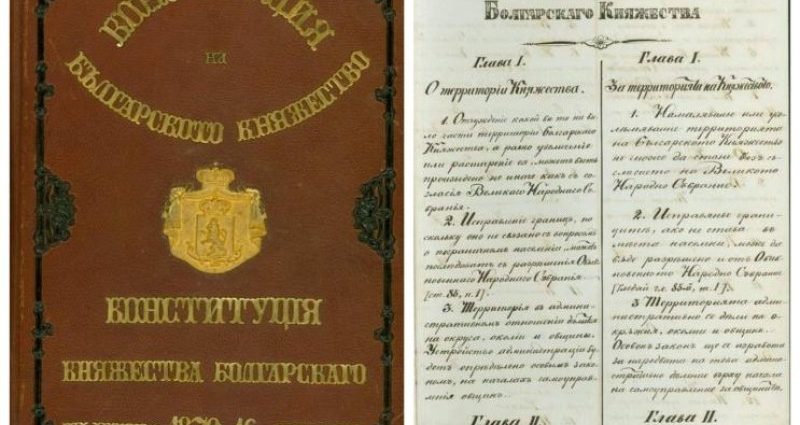 КОНСТИТУЦИЯ
НА
БЪЛГАРСКОТО КНЯЖЕСТВО
КОНСТИТУЦІЯ
КНЯЖЕСТВА БОЛГАРСКАГО
1879
Болгарскаго Княжества
Глава I.
О территоріи Княжества.
1. Отчужденіе какой бы то ни бы-
ло части территоріи Болгарскаго
Княжества, а равно увеличеніе
или расширеніе ея, можетъ быть
произведено не иначе какъ съ со-
гласія Великаго Народнаго Со-
бранья.
2. Исправленіе границъ, по-
скольку оно не связано съ вопросомъ
о пограничномъ населеніи,
съ разрѣшенія Обык-
новеннаго Народнаго Собранія
[ст. 85, п. 1].
3. Территорія въ админи-
стративномъ отношеніи дѣлится
на округа, околіи и общины.
Устройство администраціи бу-
детъ опредѣлено особымъ зако-
номъ, на началахъ самоуправ-
ленія общинъ.
Глава II.
Глава I.
За территорията на Княжеството.
1. Намаляванье или уго-
лѣмяванье територията
на Българското Княжество
не може да стане безъ съ-
гласието на Великото
Народно Събрание.
2. Исправянье грани-
цитѣ, ако не става въ
мѣста населени, може да
бѫде разрѣшено и отъ Обик-
новенното Народно Събрание
гл. 85-й, т. 1.]
3 Територията адми-
нистративно се дѣли на о-
крѫжия, околии и общини.
Особенъ законъ ще се изработи
за наредбата на това админи-
дѣление върху начала
на самоуправление за общинитѣ.
Глава II.